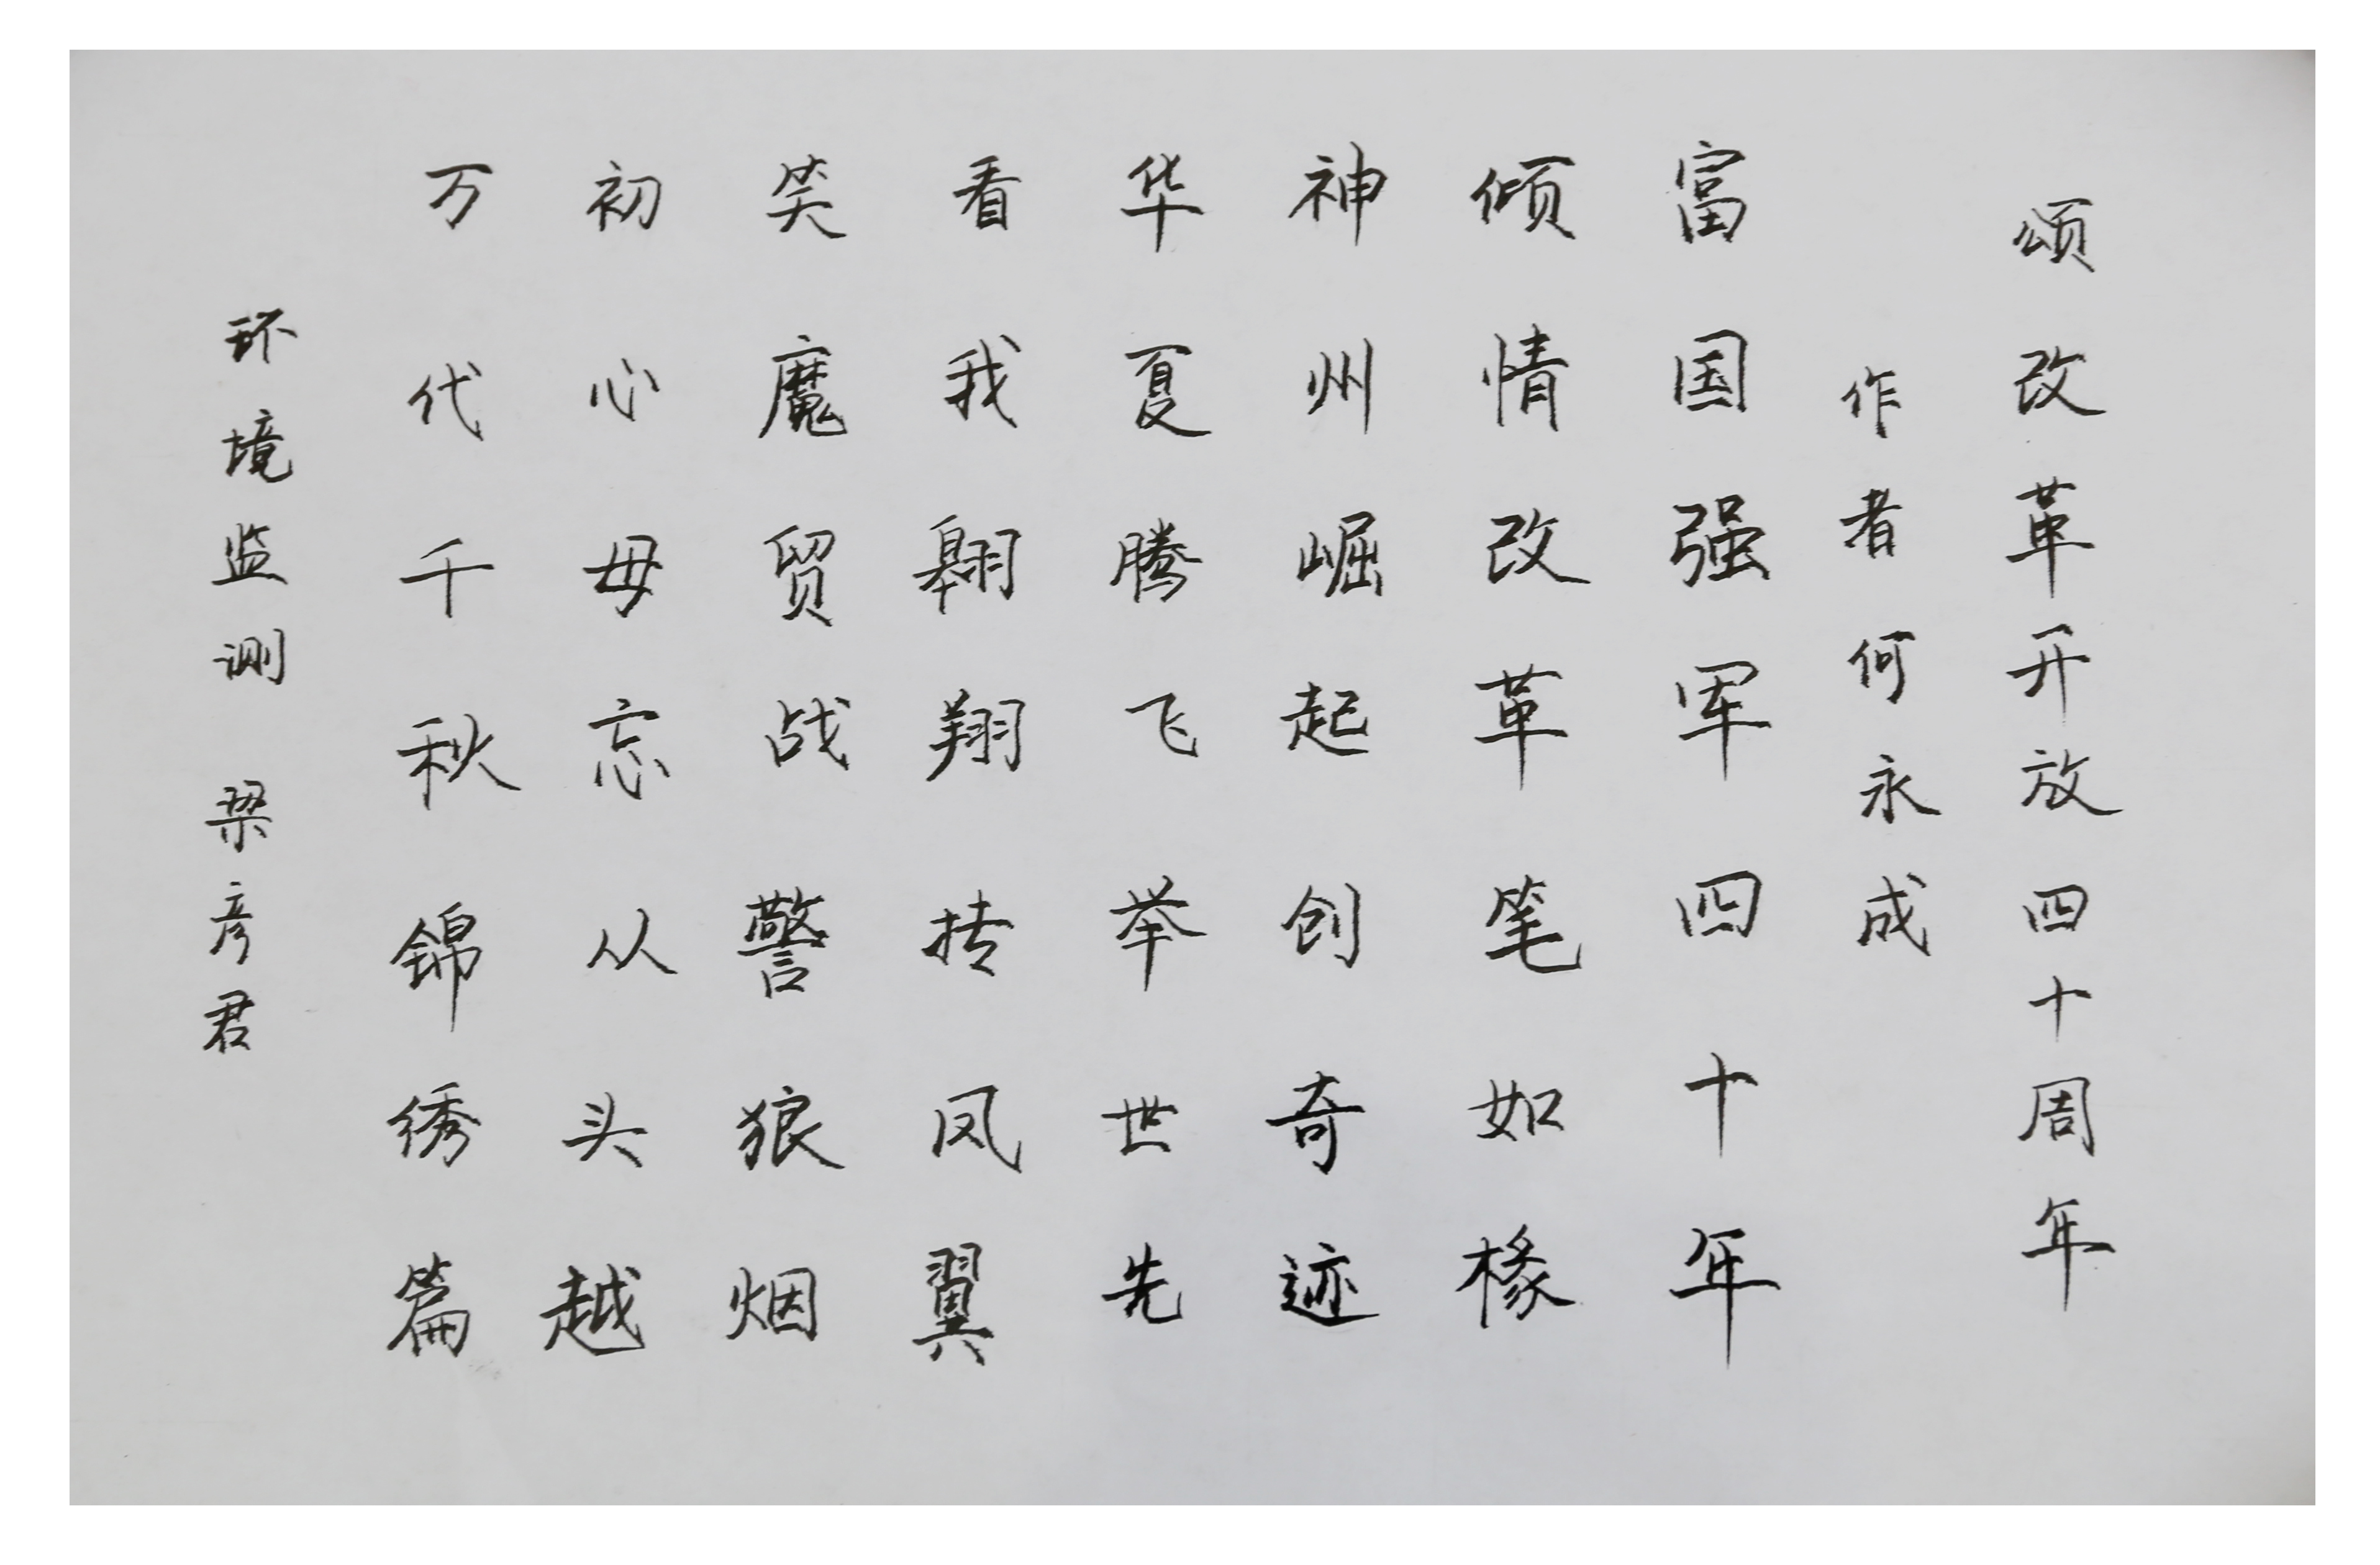 颂改革开放四十周年
作者何永成
富国强军四十年
倾情改革笔如椽
神州崛起创奇迹
华夏腾飞举世先
看我翱翔抟凤翼
笑魔贸战警狼烟
初心毋忘从头越
万代千秋锦绣篇
环境监测 梁彦君